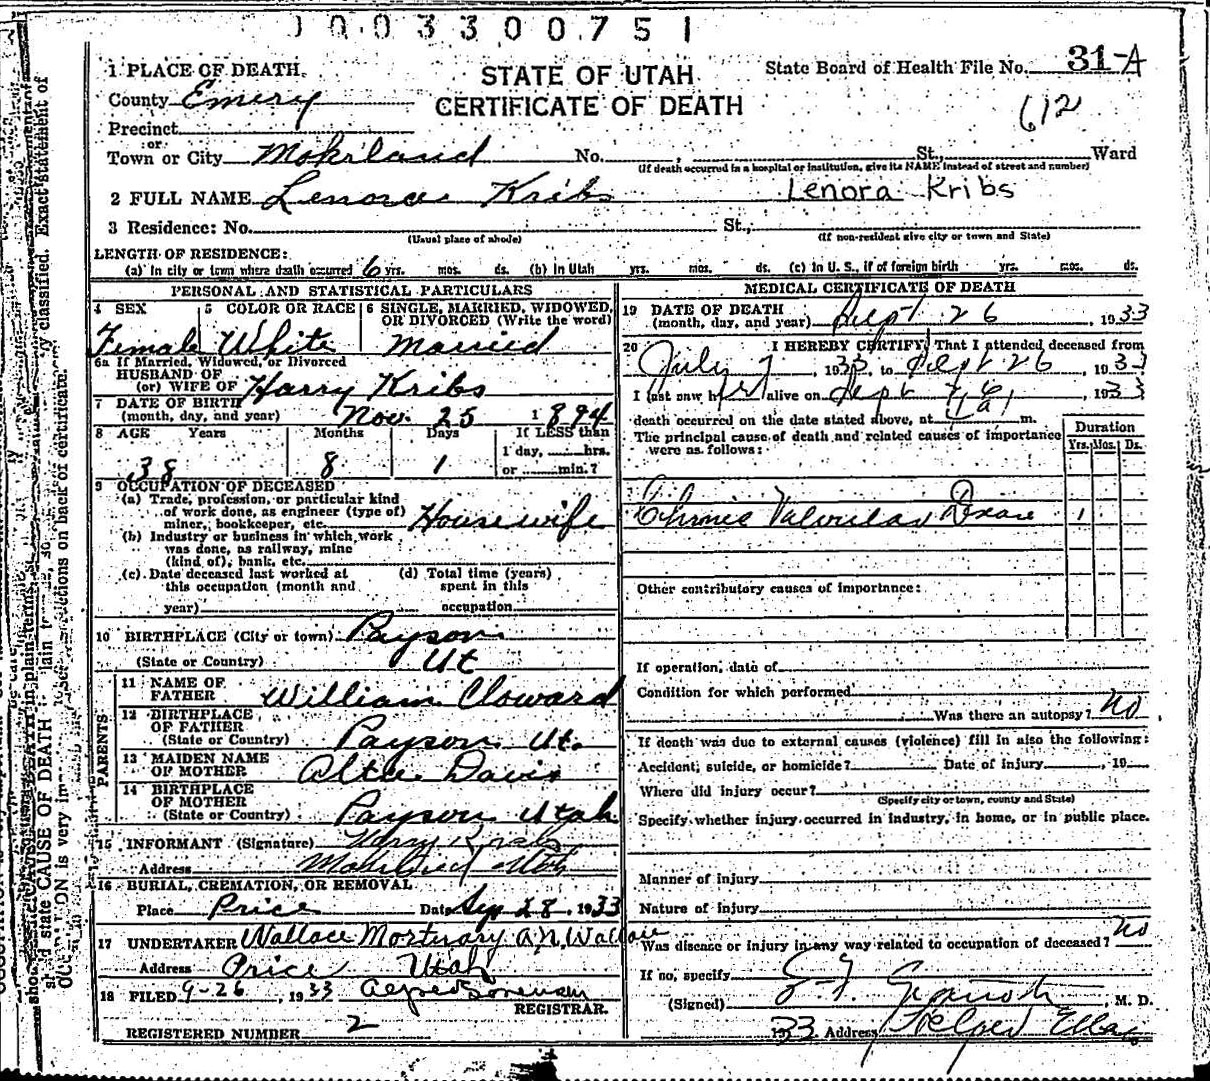 1003300751
1 PLACE OF DEATH
STATE OF UTAH
State Board of Health File No. 31-A
County Emery
CERTIFICATE OF DEATH
612
Precinct
or
Town or City Mohrland No. , St., Ward
(If death occurred in a hospital or institution, give its NAME instead of street and number)
2 FULL NAME Lenora Kribs Lenora Kribs
3 Residence: No. St.,
(Usual place of abode) (If non-resident give city or town and State)
LENGTH OF RESIDENCE:
(a) In city or town where death occurred 6 yrs. mos. ds. (b) In Utah yrs. mos. ds. (c) In U. S., if of foreign birth yrs. mos. ds.
PERSONAL AND STATISTICAL PARTICULARS
4 SEX 5 COLOR OR RACE 6 SINGLE, MARRIED, WIDOWED, OR DIVORCED (Write the word)
Female White Married
6a If Married, Widowed, or Divorced
HUSBAND OF
(or) WIFE OF Harry Kribs
7 DATE OF BIRTH
(month, day, and year) Nov. 25 1894
8 AGE Years Months Days If LESS than
1 day, hrs.
38 8 1 or min.?
9 OCCUPATION OF DECEASED
(a) Trade, profession, or particular kind
of work done, as engineer (type of)
miner, bookkeeper, etc. Housewife
(b) Industry or business in which work
was done, as railway, mine
(kind of), bank, etc.
(c) Date deceased last worked at
this occupation (month and
year)
(d) Total time (years)
spent in this
occupation
10 BIRTHPLACE (City or town) Payson
(State or Country) Ut
PARENTS
11 NAME OF
FATHER William Cloward
12 BIRTHPLACE
OF FATHER
(State or Country) Payson Ut.
13 MAIDEN NAME
OF MOTHER Davis
14 BIRTHPLACE
OF MOTHER
(State or Country) Payson Utah
15 INFORMANT (Signature) Harry Kribs
Address Mohrland Utah
16 BURIAL, CREMATION, OR REMOVAL
Place Price Date Sep 28, 1933
17 UNDERTAKER Wallace Mortuary A N Wallace
Address Price Utah
18 FILED 9-26, 1933 Alfred Sorensen
REGISTRAR.
REGISTERED NUMBER 2
MEDICAL CERTIFICATE OF DEATH
19 DATE OF DEATH
(month, day, and year) Sept 26, 1933
20 I HEREBY CERTIFY, That I attended deceased from
July 7, 1933, to Sept 26, 1933
I last saw her alive on Sept, 1933
death occurred on the date stated above, at m.
The principal cause of death and related causes of importance
were as follows:
Duration
Yrs. Mos. Ds.
Chronic Valvular 1
Other contributory causes of importance:
If operation, date of
Condition for which performed
Was there an autopsy? No
If death was due to external causes (violence) fill in also the following:
Accident, suicide, or homicide? Date of injury , 19
Where did injury occur?
(Specify city or town, county and State)
Specify whether injury occurred in industry, in home, or in public place.
Manner of injury
Nature of injury
Was disease or injury in any way related to occupation of deceased? No
If no, specify
(Signed) , M. D.
33 Address Helper